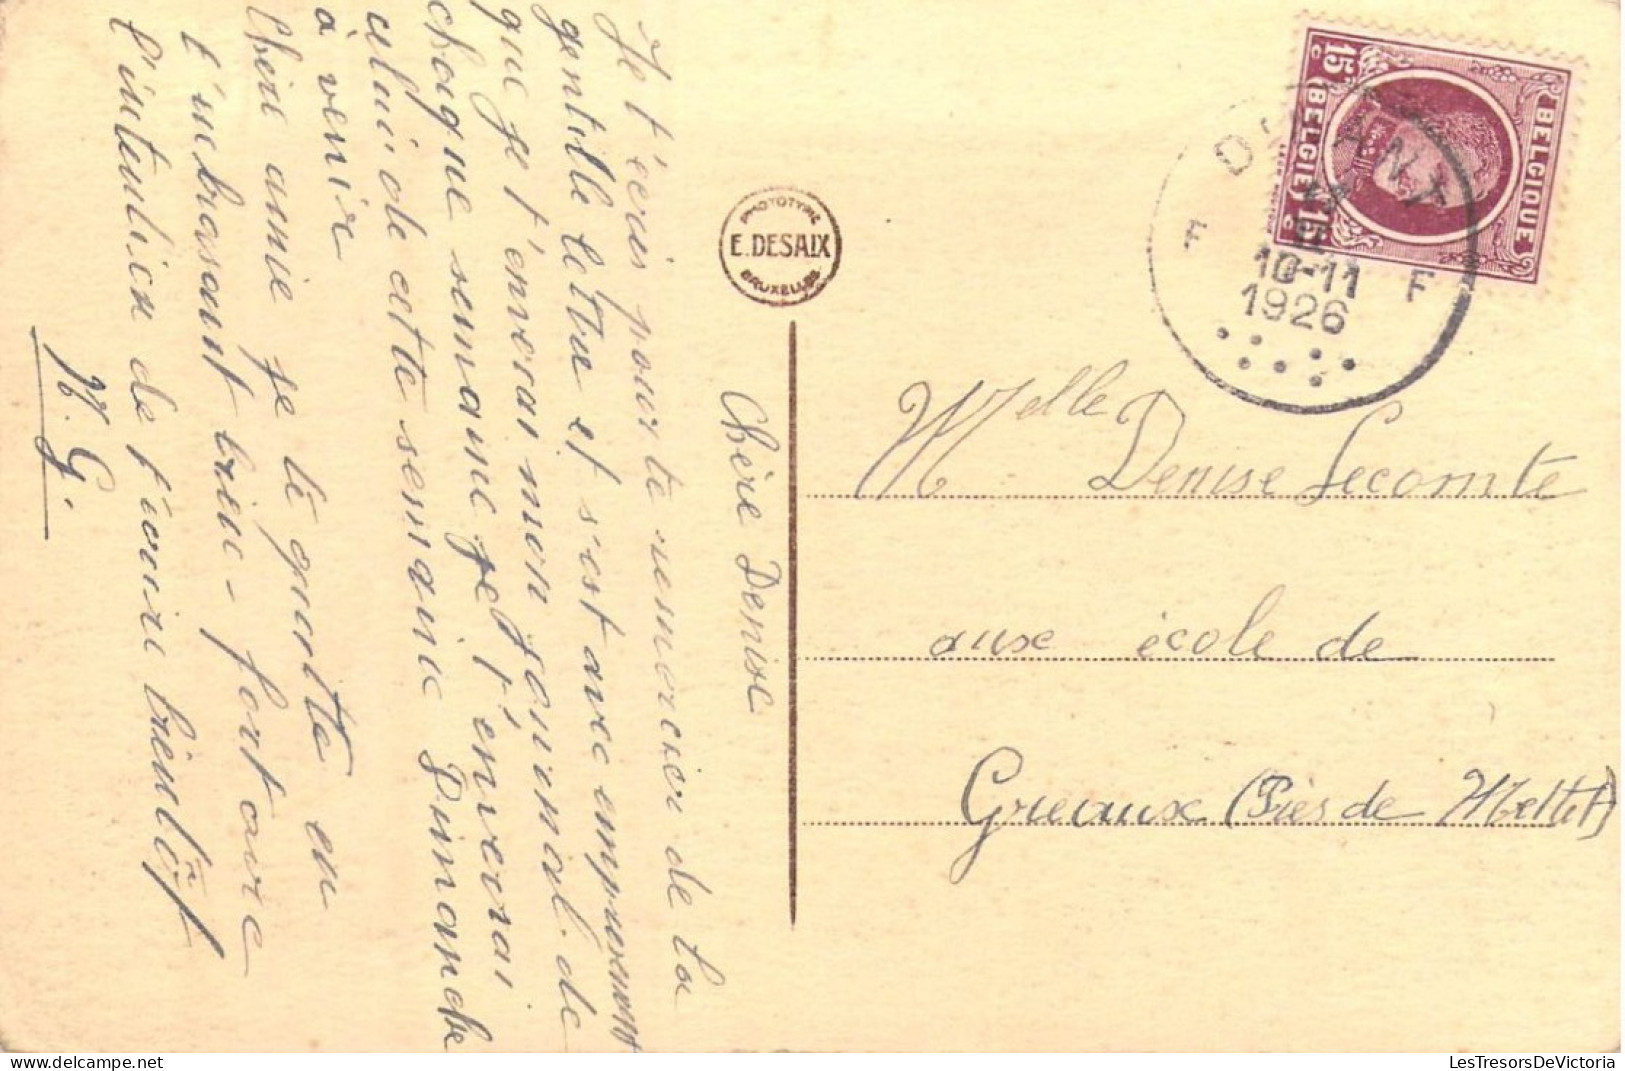 Chère Denise
Je t'écris pour te remercier de ta
gentille lettre et s'est avec empressement
que je t'enverai mon journal de
chaque semaine je t'enverai
celui de cette semaine Dimanche
à venir
Chère amie je te quitte en
t'embrasant bien fort avec
l'intention de t'écrire bientôt
PHOTOTYPIE
E. DESAIX
BRUXELLES
BELGIQUE
BELGIË
15 c
15 c
DINANT
F F
10-11
1926
Melle Denise Lecomte
aux école de
Greaux (Près de Mettet)
LesTresorsDeVictoria